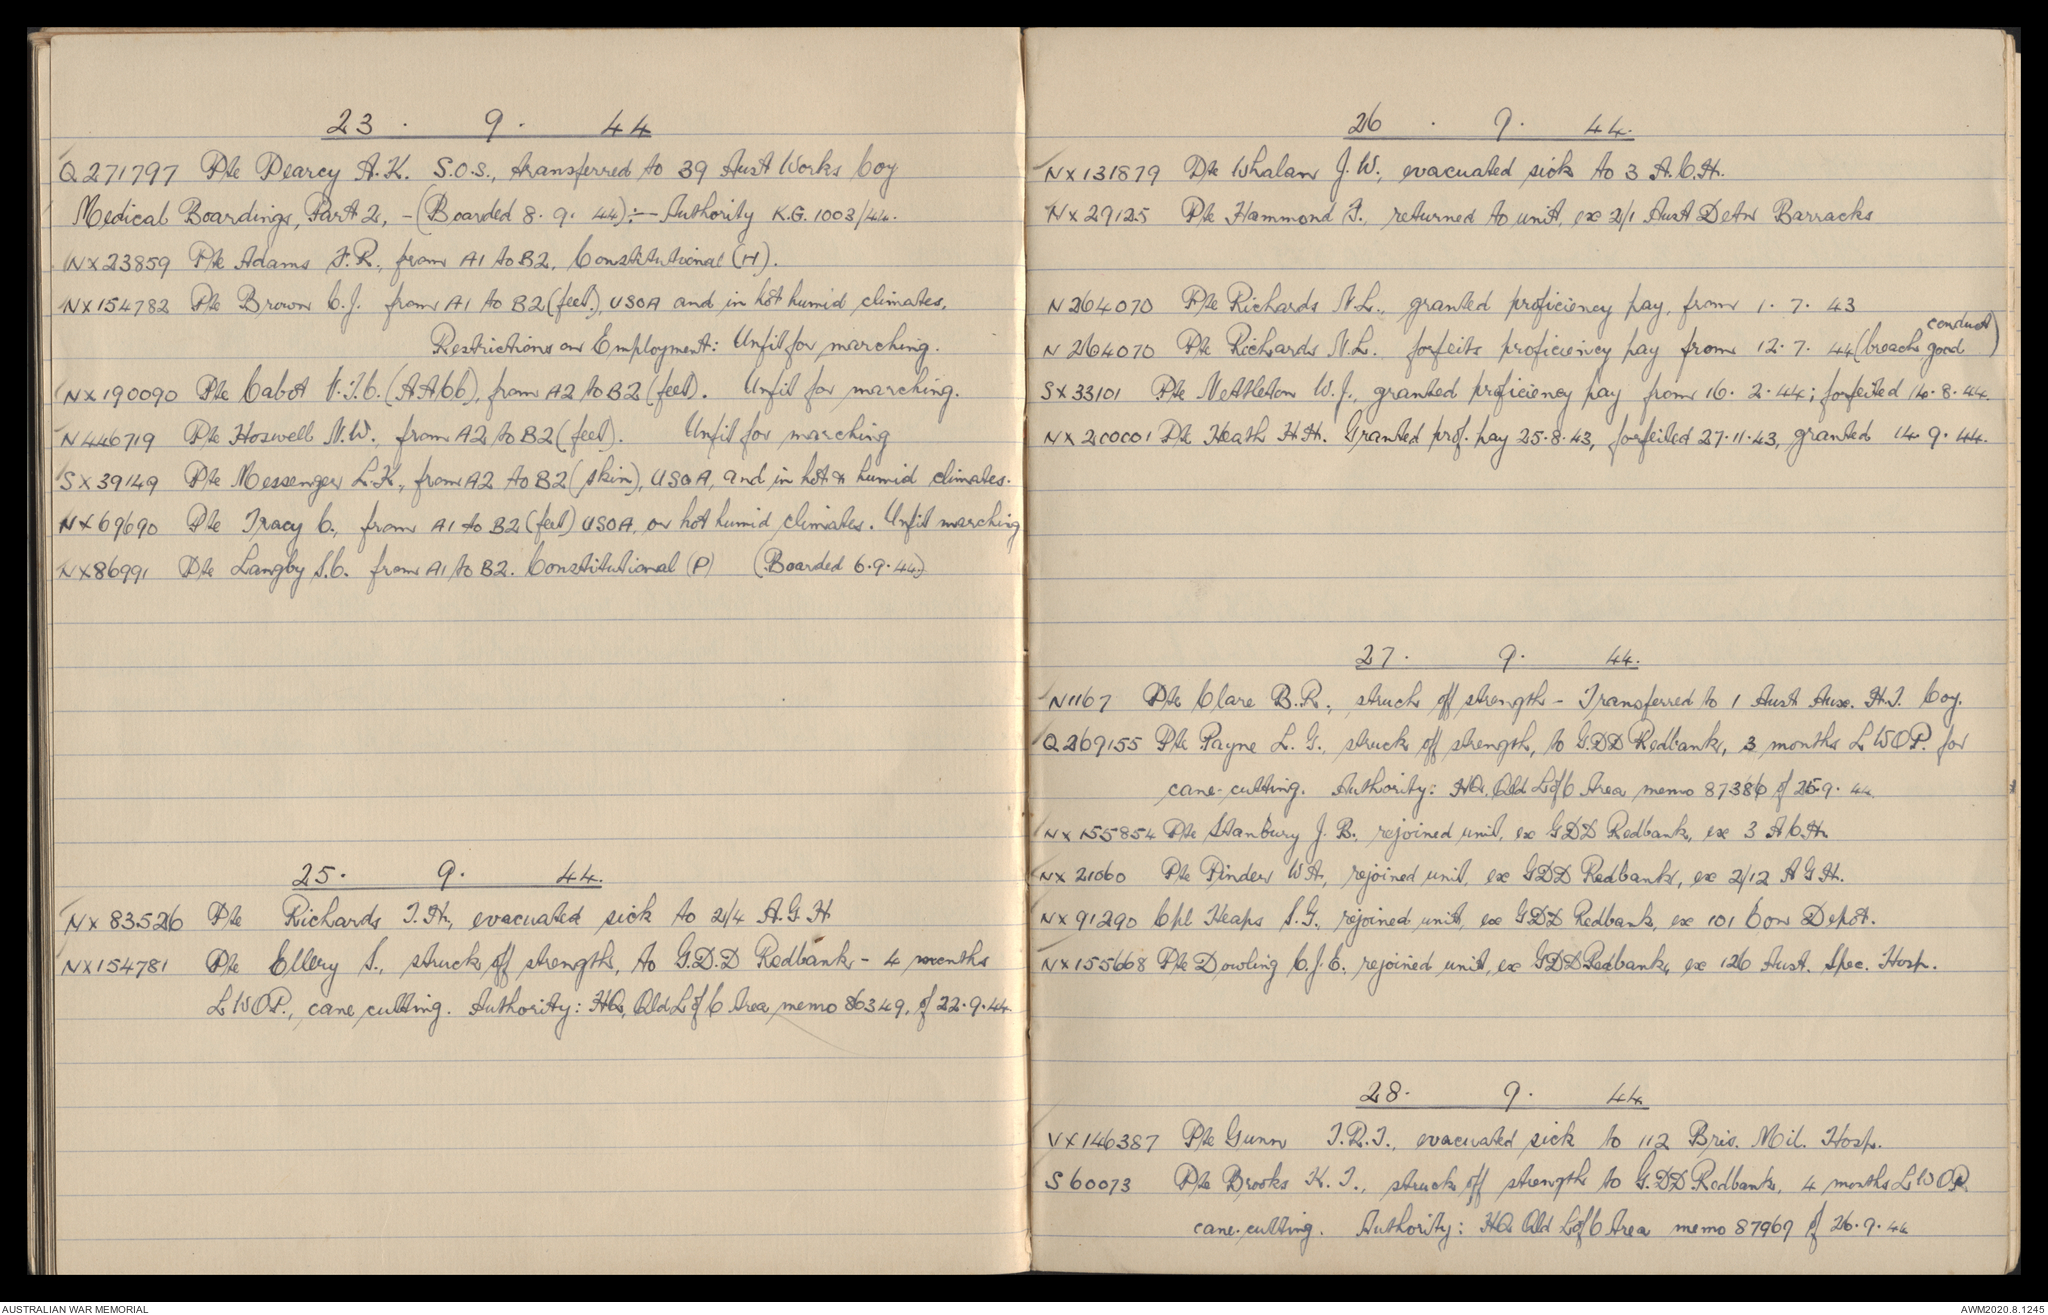 23 . 9 . 44
Q271797 Pte Pearcy A.K. S.O.S., transferred to 39 Aust Works Coy
Medical Boardings, Part 2, - (Boarded 8. 9. 44):- Authority K.G. 1003/44.
NX23859 Pte Adams F.R., from A1 to B2, Constitutional (H).
NX154782 Pte Brown C.J. from A1 to B2 (feet), USOA and in hot humid climates.
Restrictions on Employment: Unfit for marching.
NX190090 Pte Cabot V.T.C. (AACC), from A2 to B2 (feet). Unfit for marching.
N446719 Pte Hoswell N.W., from A2 to B2 (feet). Unfit for marching
SX39149 Pte Messenger L.K., from A2 to B2 (skin), USOA, and in hot & humid climates.
NX69690 Pte Tracy C., from A1 to B2 (feet) USOA, or hot humid climates. Unfit marching
NX86991 Pte Langby S.C. from A1 to B2. Constitutional (P) (Boarded 6.9.44)
25. 9. 44.
NX83526 Pte Richards T.H., evacuated sick to 2/4 A.G.H
NX154781 Pte Ellery S., struck off strength, to G.D.D Redbank - 4 months
LWOP., cane cutting. Authority: HQ, Qld L of C Area memo 86349, of 22.9.44
26 . 9. 44.
NX131879 Pte Whalan J.W., evacuated sick to 3 A.C.H.
NX29125 Pte Hammond F., returned to unit, ex 2/1 Aust Detn Barracks
N264070 Pte Richards N.L., granted proficiency pay, from 1. 7. 43
conduct
N264070 Pte Richards N.L. forfeits proficiency pay from 12. 7. 44 (breach good )
SX33101 Pte Nettleton W.J., granted proficiency pay from 16. 2. 44; forfeited 14. 8. 44.
NX200001 Pte Heath H.H. Granted prof. pay 25.8.43, forfeited 27.11.43, granted 14. 9. 44.
27. 9. 44.
N1167 Pte Clare B.R., struck off strength - Transferred to 1 Aust Aux. H.T. Coy.
Q269155 Pte Payne L. G., struck off strength, to G.DD Redbank, 3 months LWOP. for
cane-cutting. Authority: HQ, Qld L of C Area memo 87386 of 25.9. 44.
NX155854 Pte Stanbury J. B. rejoined unit, ex GDD Redbank, ex 3 ACH.
NX21060 Pte Pinder WA, rejoined unit, ex GDD Redbank, ex 2/12 AGH.
NX91290 Cpl Heaps S.G., rejoined unit, ex GDD Redbank, ex 101 Con Depot.
NX155668 Pte Dowling C.J.E. rejoined unit, ex GDD Redbank, ex 126 Aust. Spec. Hosp.
28. 9. 44
VX146387 Pte Gunn T.R.T., evacuated sick to 112 Bris. Mil. Hosp.
S60073 Pte Brooks K. T., struck off strength to G.DD Redbank, 4 months LWOP.
cane-cutting. Authority: HQ Qld L of C Area memo 87969 of 26.9.44
AUSTRALIAN WAR MEMORIAL
AWM2020.8.1245